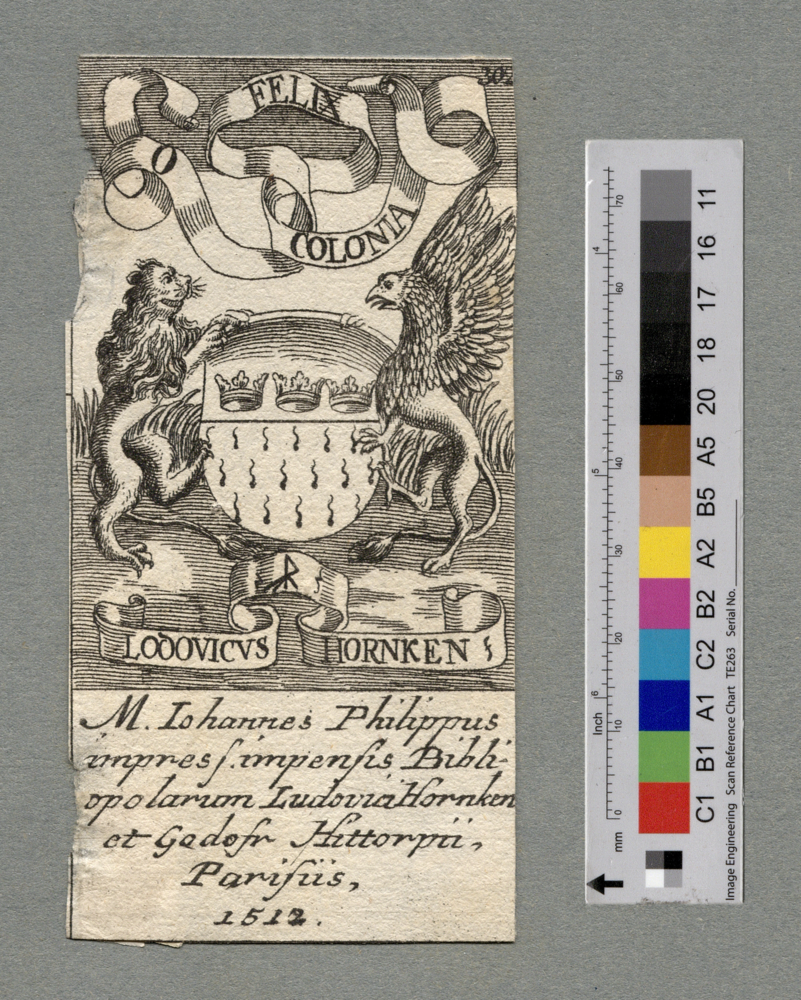 O FELIX
COLONIA
LODOVICVS HORNKEN
M. Iohannes Philippus
impres ſ. impenſis Bibli-
opolarum Ludovici Hornken
et Godofr Hittorpii,
Pariſiis,
1512.
11
16
17
18
20
A5
B5
A2
B2
C2
A1
B1
C1
mm 0 10 20 30 40 50 60 70
Inch 6 5 4
Image Engineering Scan Reference Chart TE263 Serial No.